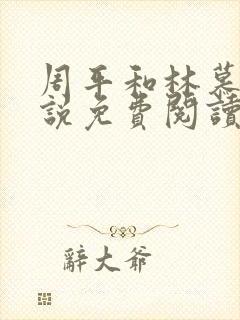 周平和林慕
說免費閱讀
辭大爺